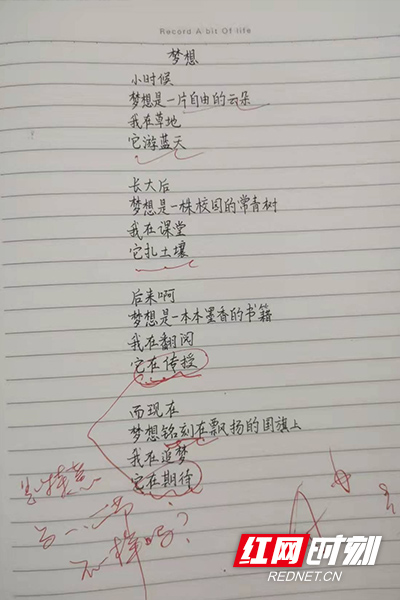 Record A bit Of life
梦想
小时候
梦想是一片自由的云朵
我在草地
它游蓝天
长大后
梦想是一株校园的常青树
我在课堂
它扎土壤
后来啊
梦想是一本本墨香的书籍
我在翻阅
它在传授
而现在
梦想铭刻在飘扬的国旗上
我在追梦
它在期待
红网时刻
REDNET.CN